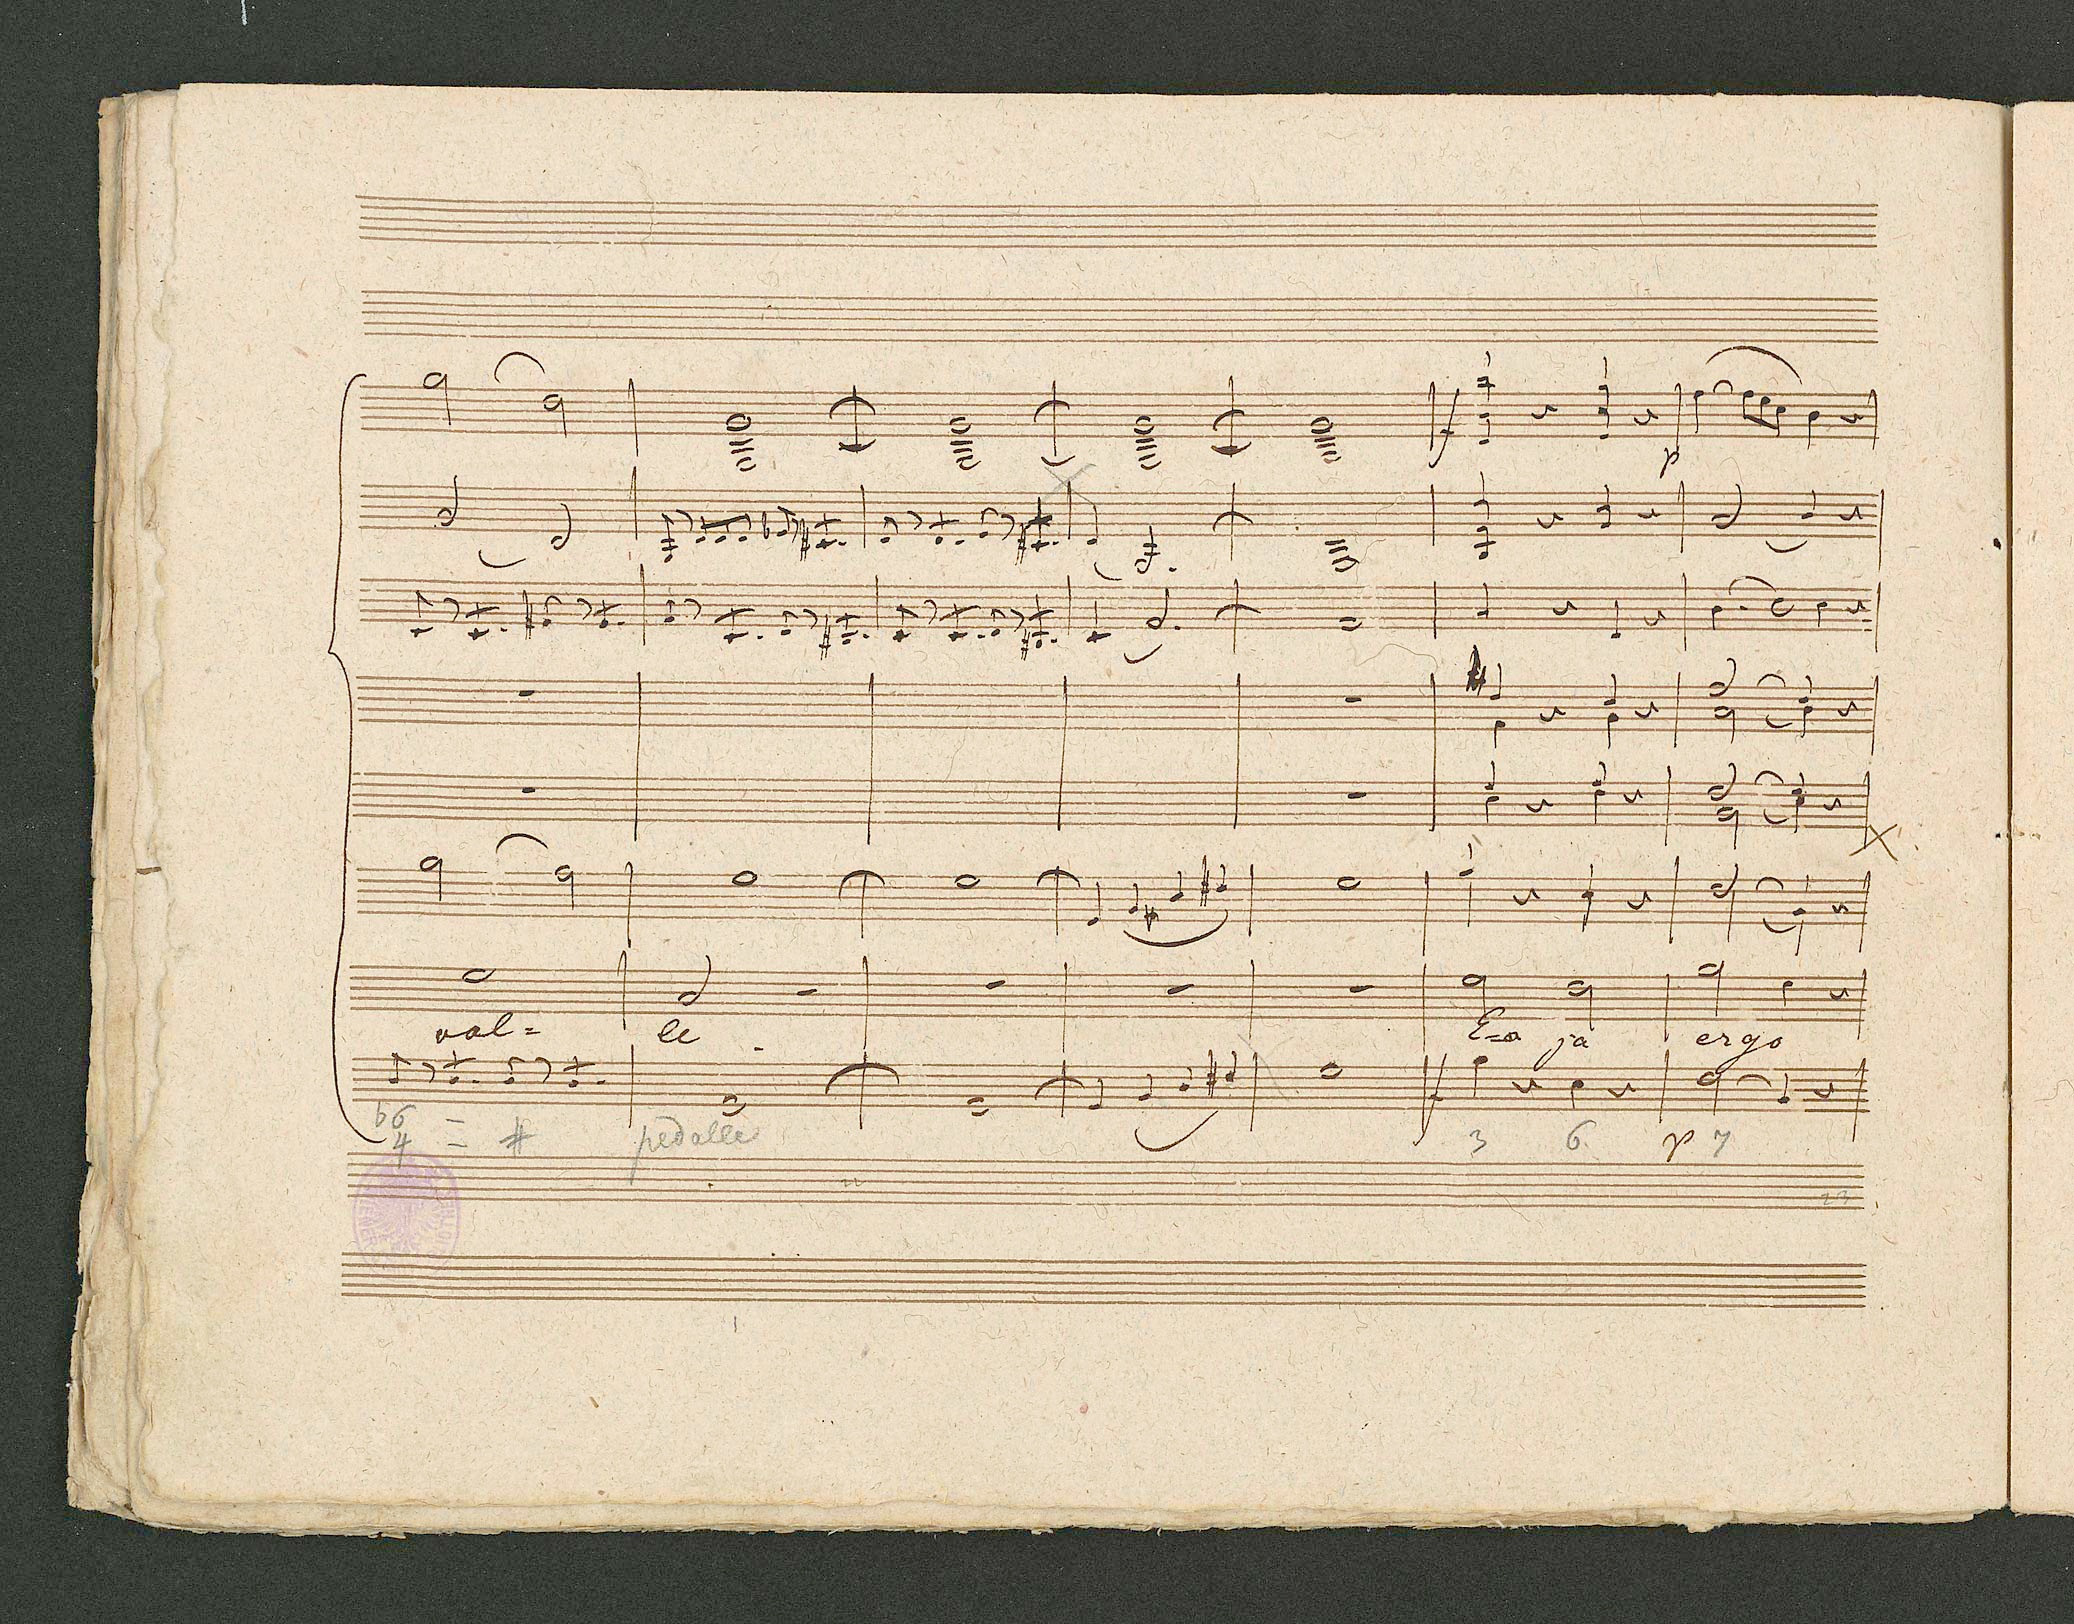 f
p
val= le E=a ja ergo
f
b6 = #
4 = pedalle 3 6 p 7
23